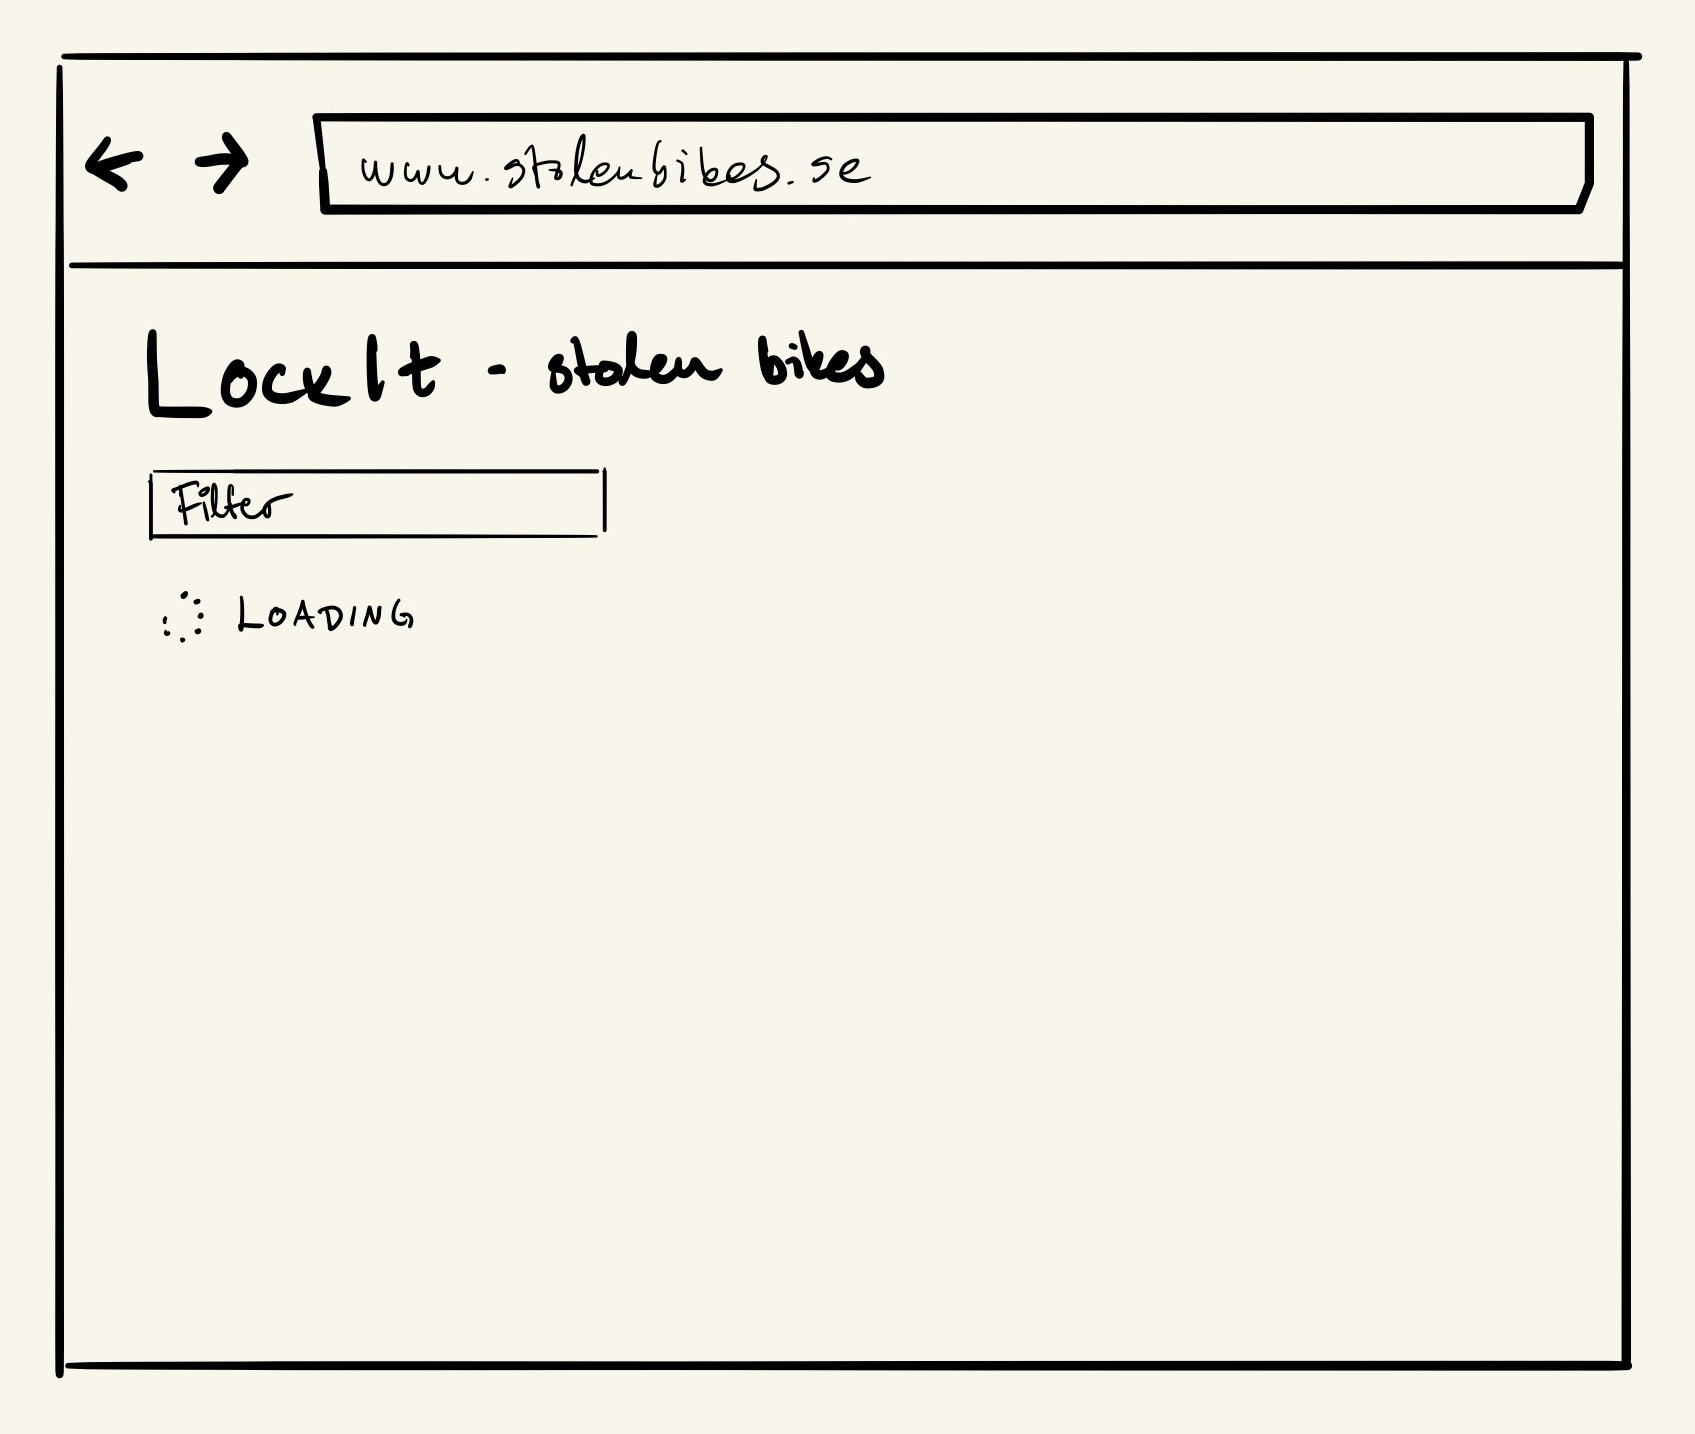 www.stolenbikes.se
LockIt - stolen bikes
Filter
LOADING